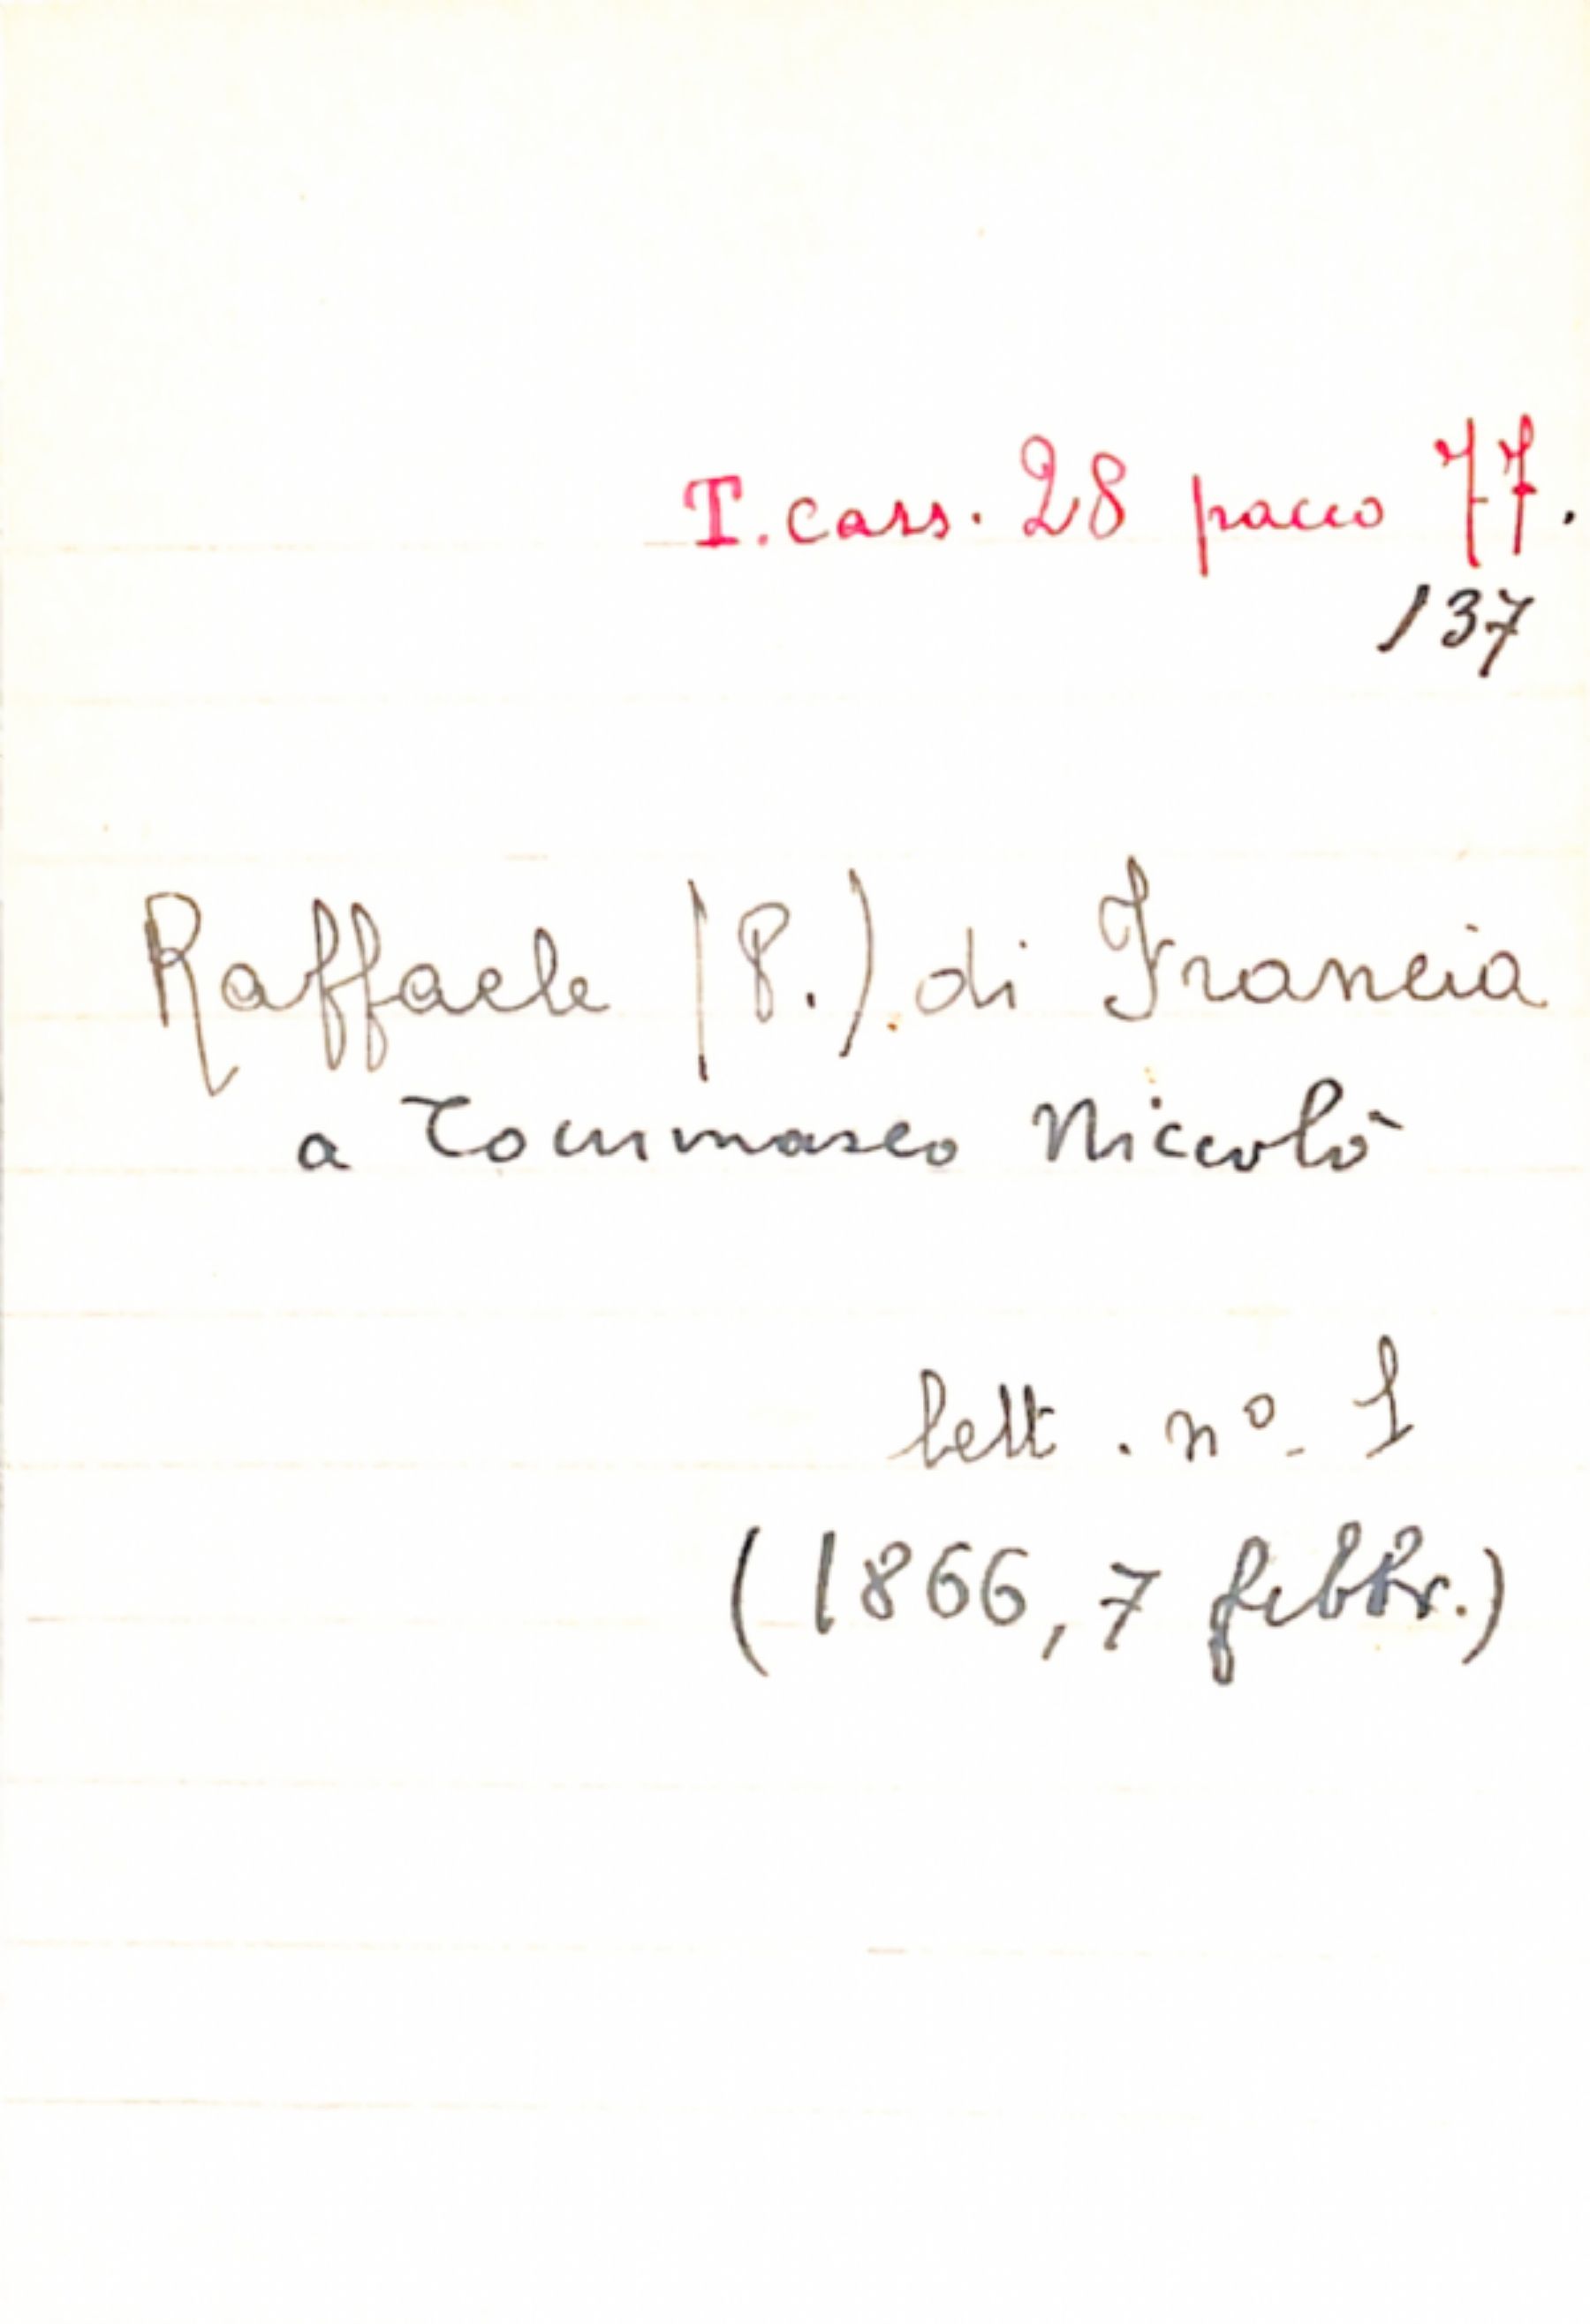 T. cass. 28 pacco 77.
137
Raffaele (P.) di Francia
a Tommaseo Niccolò
lett. nº 1
(1866, 7 febbr.)